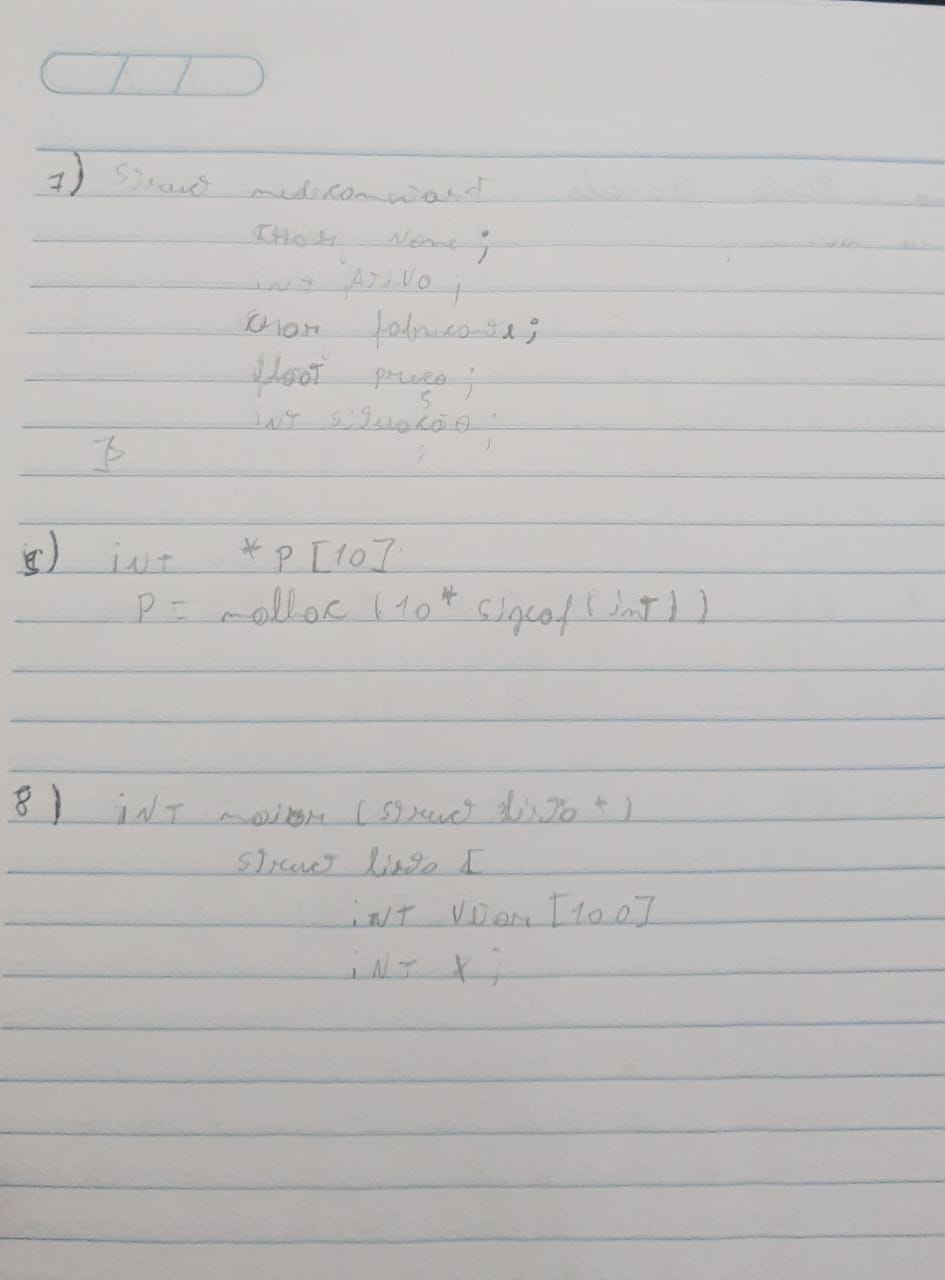 1) struct
CHAR Nome;
int ATIVO;
char fabricante;
float preço;
INT situação;
}
INT *P[10]
P = malloc (10* sizeof(int))
8) INT maior (struct lista *)
struct lista {
INT [100]
INT X;